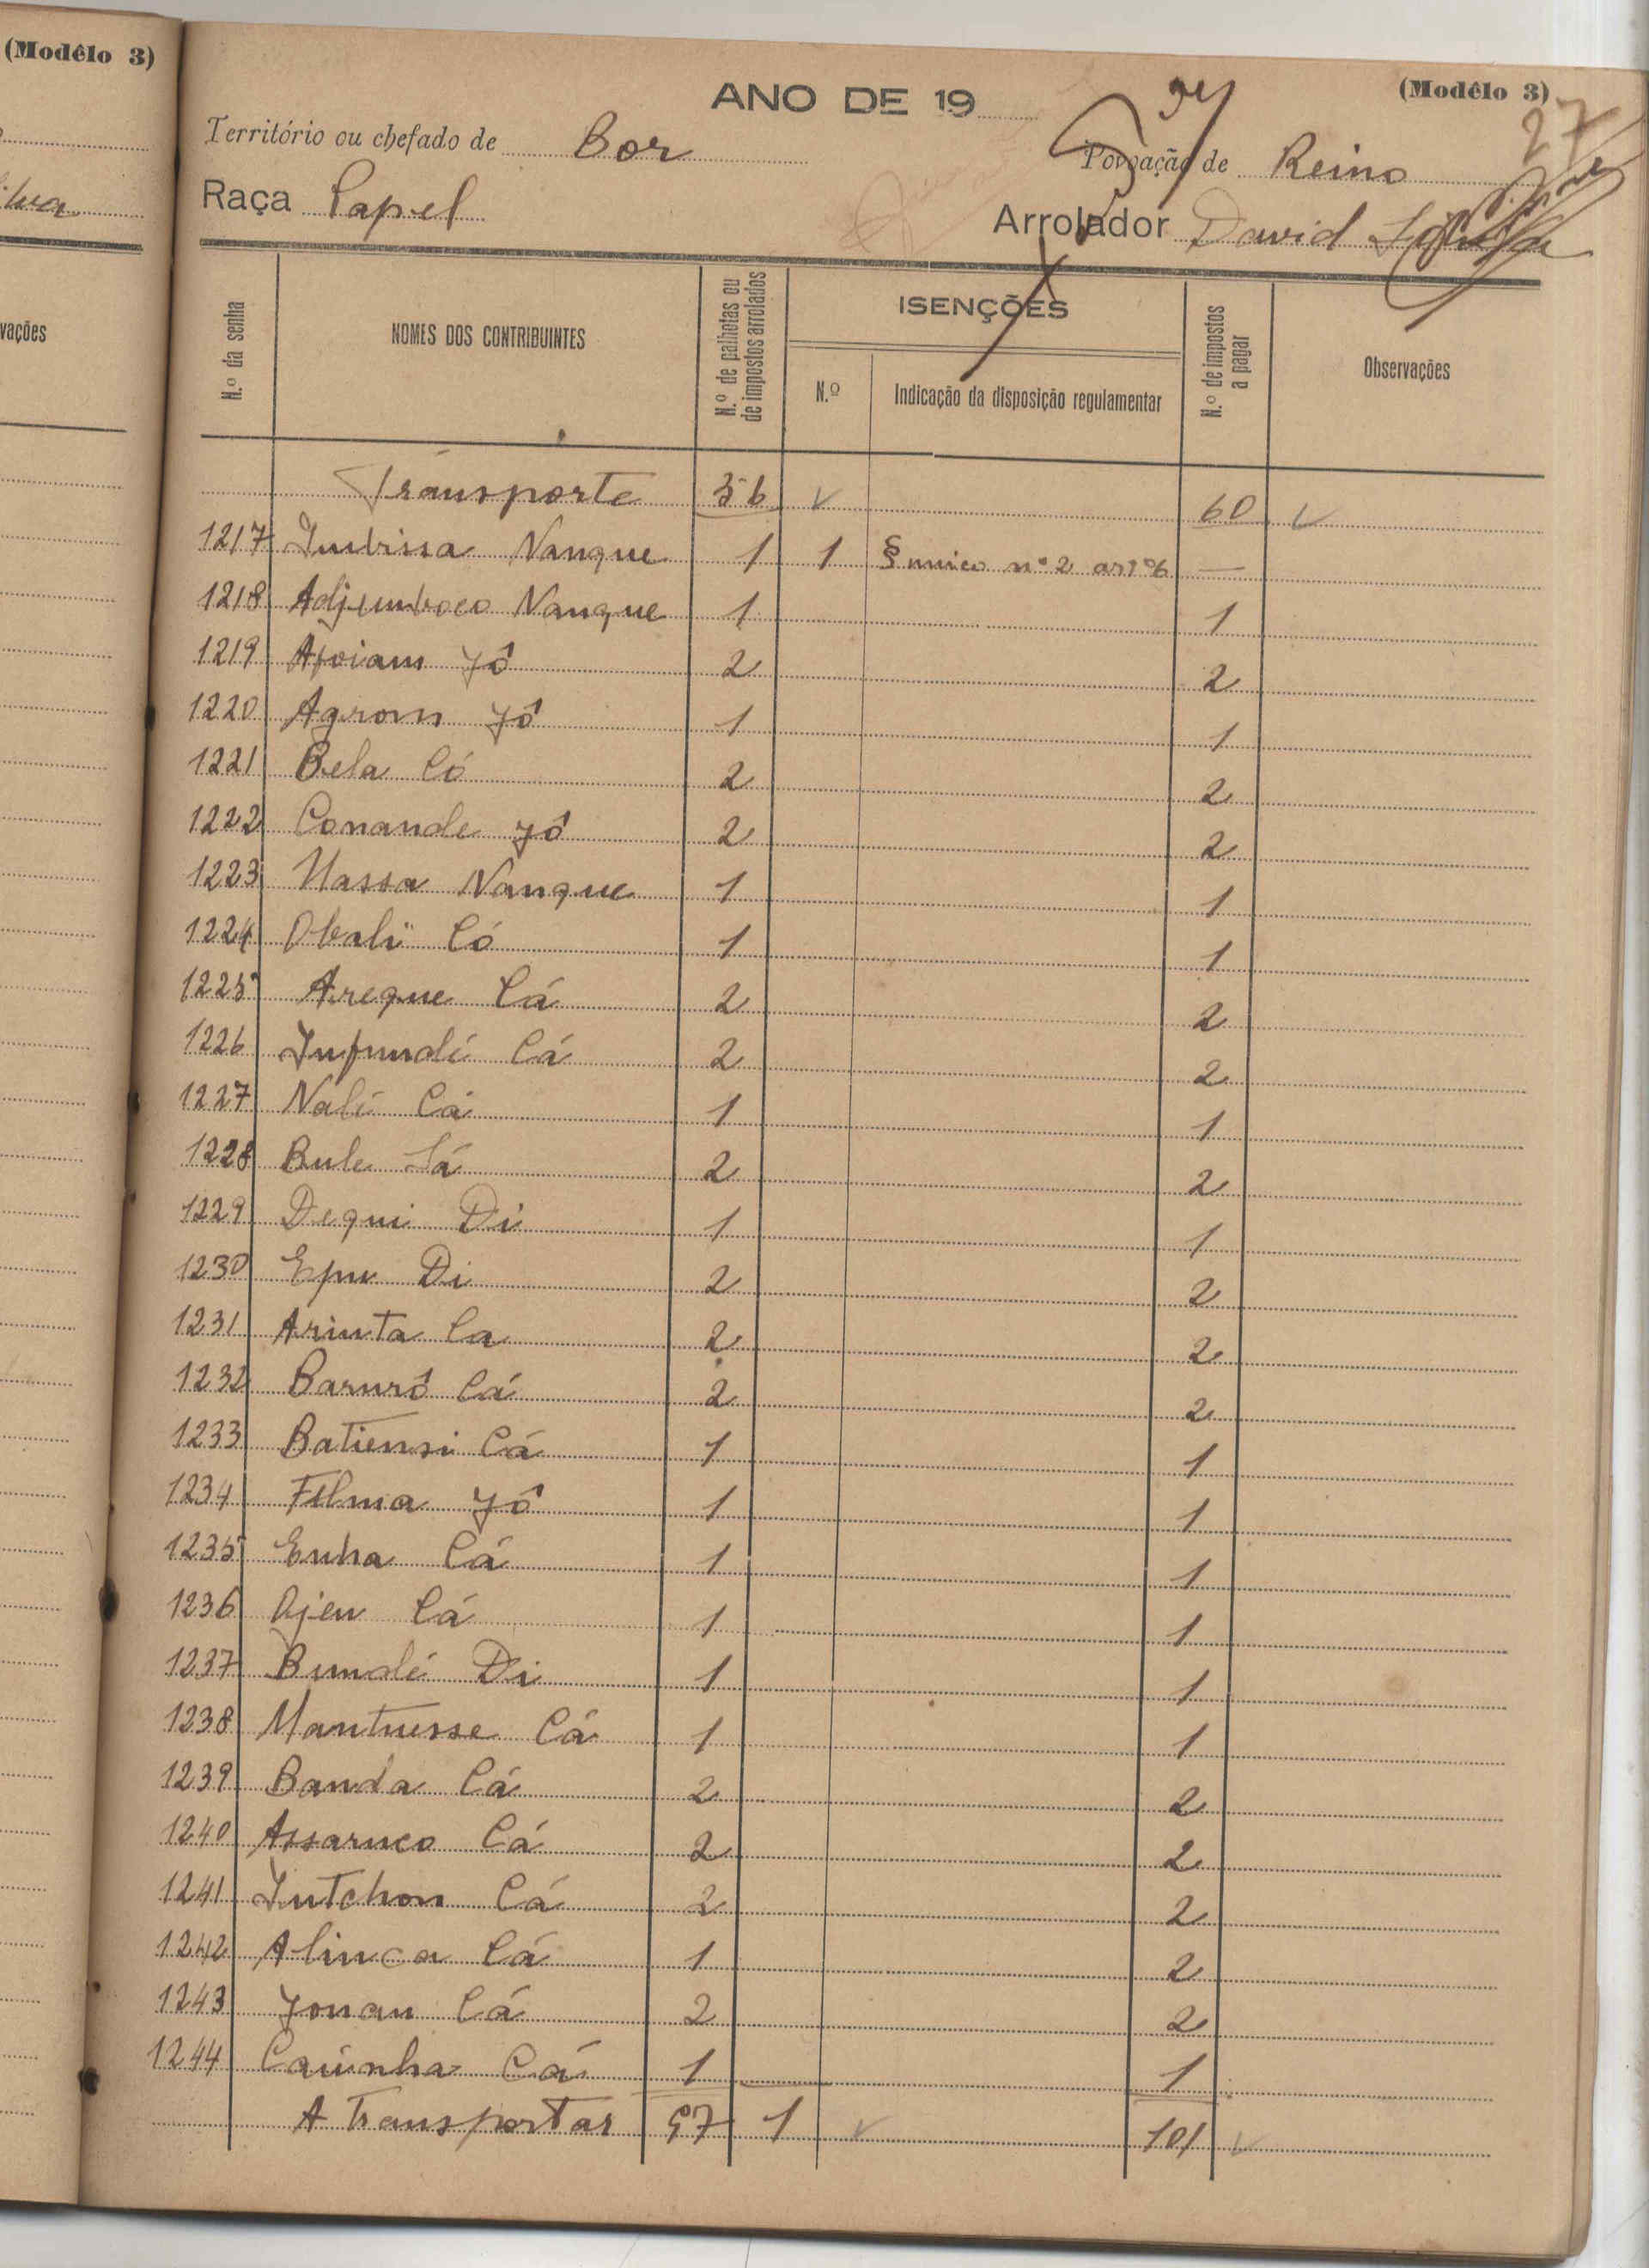 (Modêlo 3)
ANO DE 19
(Modêlo 3)
27
Território ou chefado de Bor
Povoação de Reino
Raça Papel
Arrolador David
vações
N.º da senha
NOMES DOS CONTRIBUINTES
N.º de palhotas ou de impostos arrolados
ISENÇÕES
N.º
Indicação da disposição regulamentar
N.º de impostos a pagar
Observações
Transporte 56 60
1217 Imbissa Nanque 1 1 § unico nº 2 artº 6 —
1218 Adjumboco Nanque 1 1
1219 Apoiam Jô 2 2
1220 Agrom Jô 1 1
1221 Bela Có 2 2
1222 Conande Jô 2 2
1223 Nassa Nanque 1 1
1224 Obali Có 1 1
1225 Areque Cá 2 2
1226 Infundé Cá 2 2
1227 Nalé Cá 1 1
1228 Bule Sá 2 2
1229 Dequi Di 1 1
1230 Epu Di 2 2
1231 Arinta Ca 2 2
1232 Barurô Cá 2 2
1233 Batiensi Cá 1 1
1234 Filma Jô 1 1
1235 Enha Cá 1 1
1236 Ajeu Cá 1 1
1237 Bundé Di 1 1
1238 Mantuesse Cá 1 1
1239 Banda Cá 2 2
1240 Assaruco Cá 2 2
1241 Intchon Cá 2 2
1242 Alinca Cá 1 2
1243 Jonau Cá 2 2
1244 Cainha Cá 1 1
A Transportar 97 1 101